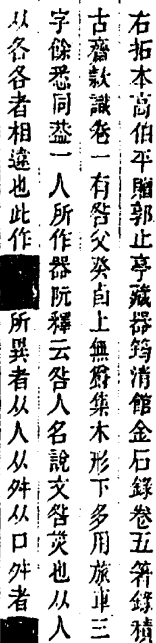 右拓本高伯平贈郭止亭藏器筠清館金石錄卷五箸錄積
古齋款識卷一有咎父癸卣上無𣪘集木形下多用旅車三
字餘悉同葢一人所作器阮釋云咎人名說文咎災也从人
从各各者相違也此作 所異者从人从舛从口舛者